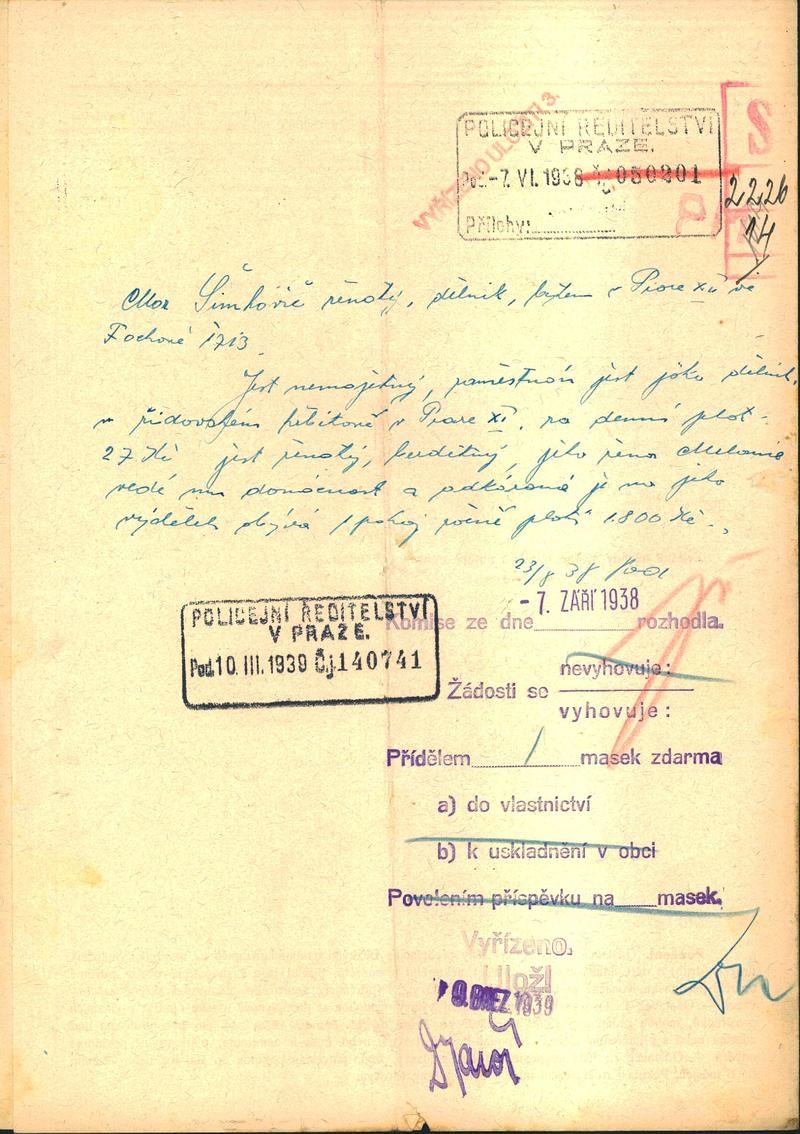 VYŘÍZENO ULOŽIT 3.
POLICEJNÍ ŘEDITELSTVÍ
V PRAZE.
Pod. -7. VI. 1938 Čj. 050201
Přílohy:
S
2226
14
Max Šimkovič ženatý, dělník, bytem v Praze XII ve
Fochově 1713.
Jest nemajetný, zaměstnán jest jako dělník
v židovském hřbitově v Praze XI. za denní plat
27 Kč jest ženatý, bezdětný, jeho žena Melanie
vede mu domácnost a odkázaná je na jeho
výdělek obývá 1 pokoj ročně platí 1.800 Kč.
23/8 38
POLICEJNÍ ŘEDITELSTVÍ
V PRAZE.
Pod. 10. III. 1939 Čj. 140741
-7. ZÁŘÍ 1938
Komise ze dne rozhodla.
nevyhovuje:
Žádosti se
vyhovuje:
Přídělem 1 masek zdarma
a) do vlastnictví
b) k uskladnění v obci
Povolením příspěvku na masek.
Vyřízeno.
Uložl
BŘEZ 1939